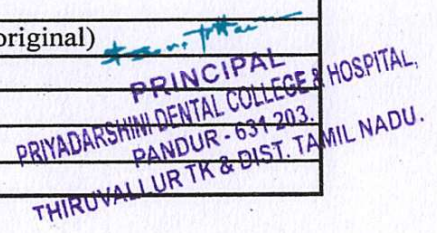 original)
PRINCIPAL
PRIYADARSHINI DENTAL COLLEGE & HOSPITAL,
PANDUR - 631 203.
THIRUVALLUR TK & DIST. TAMIL NADU.